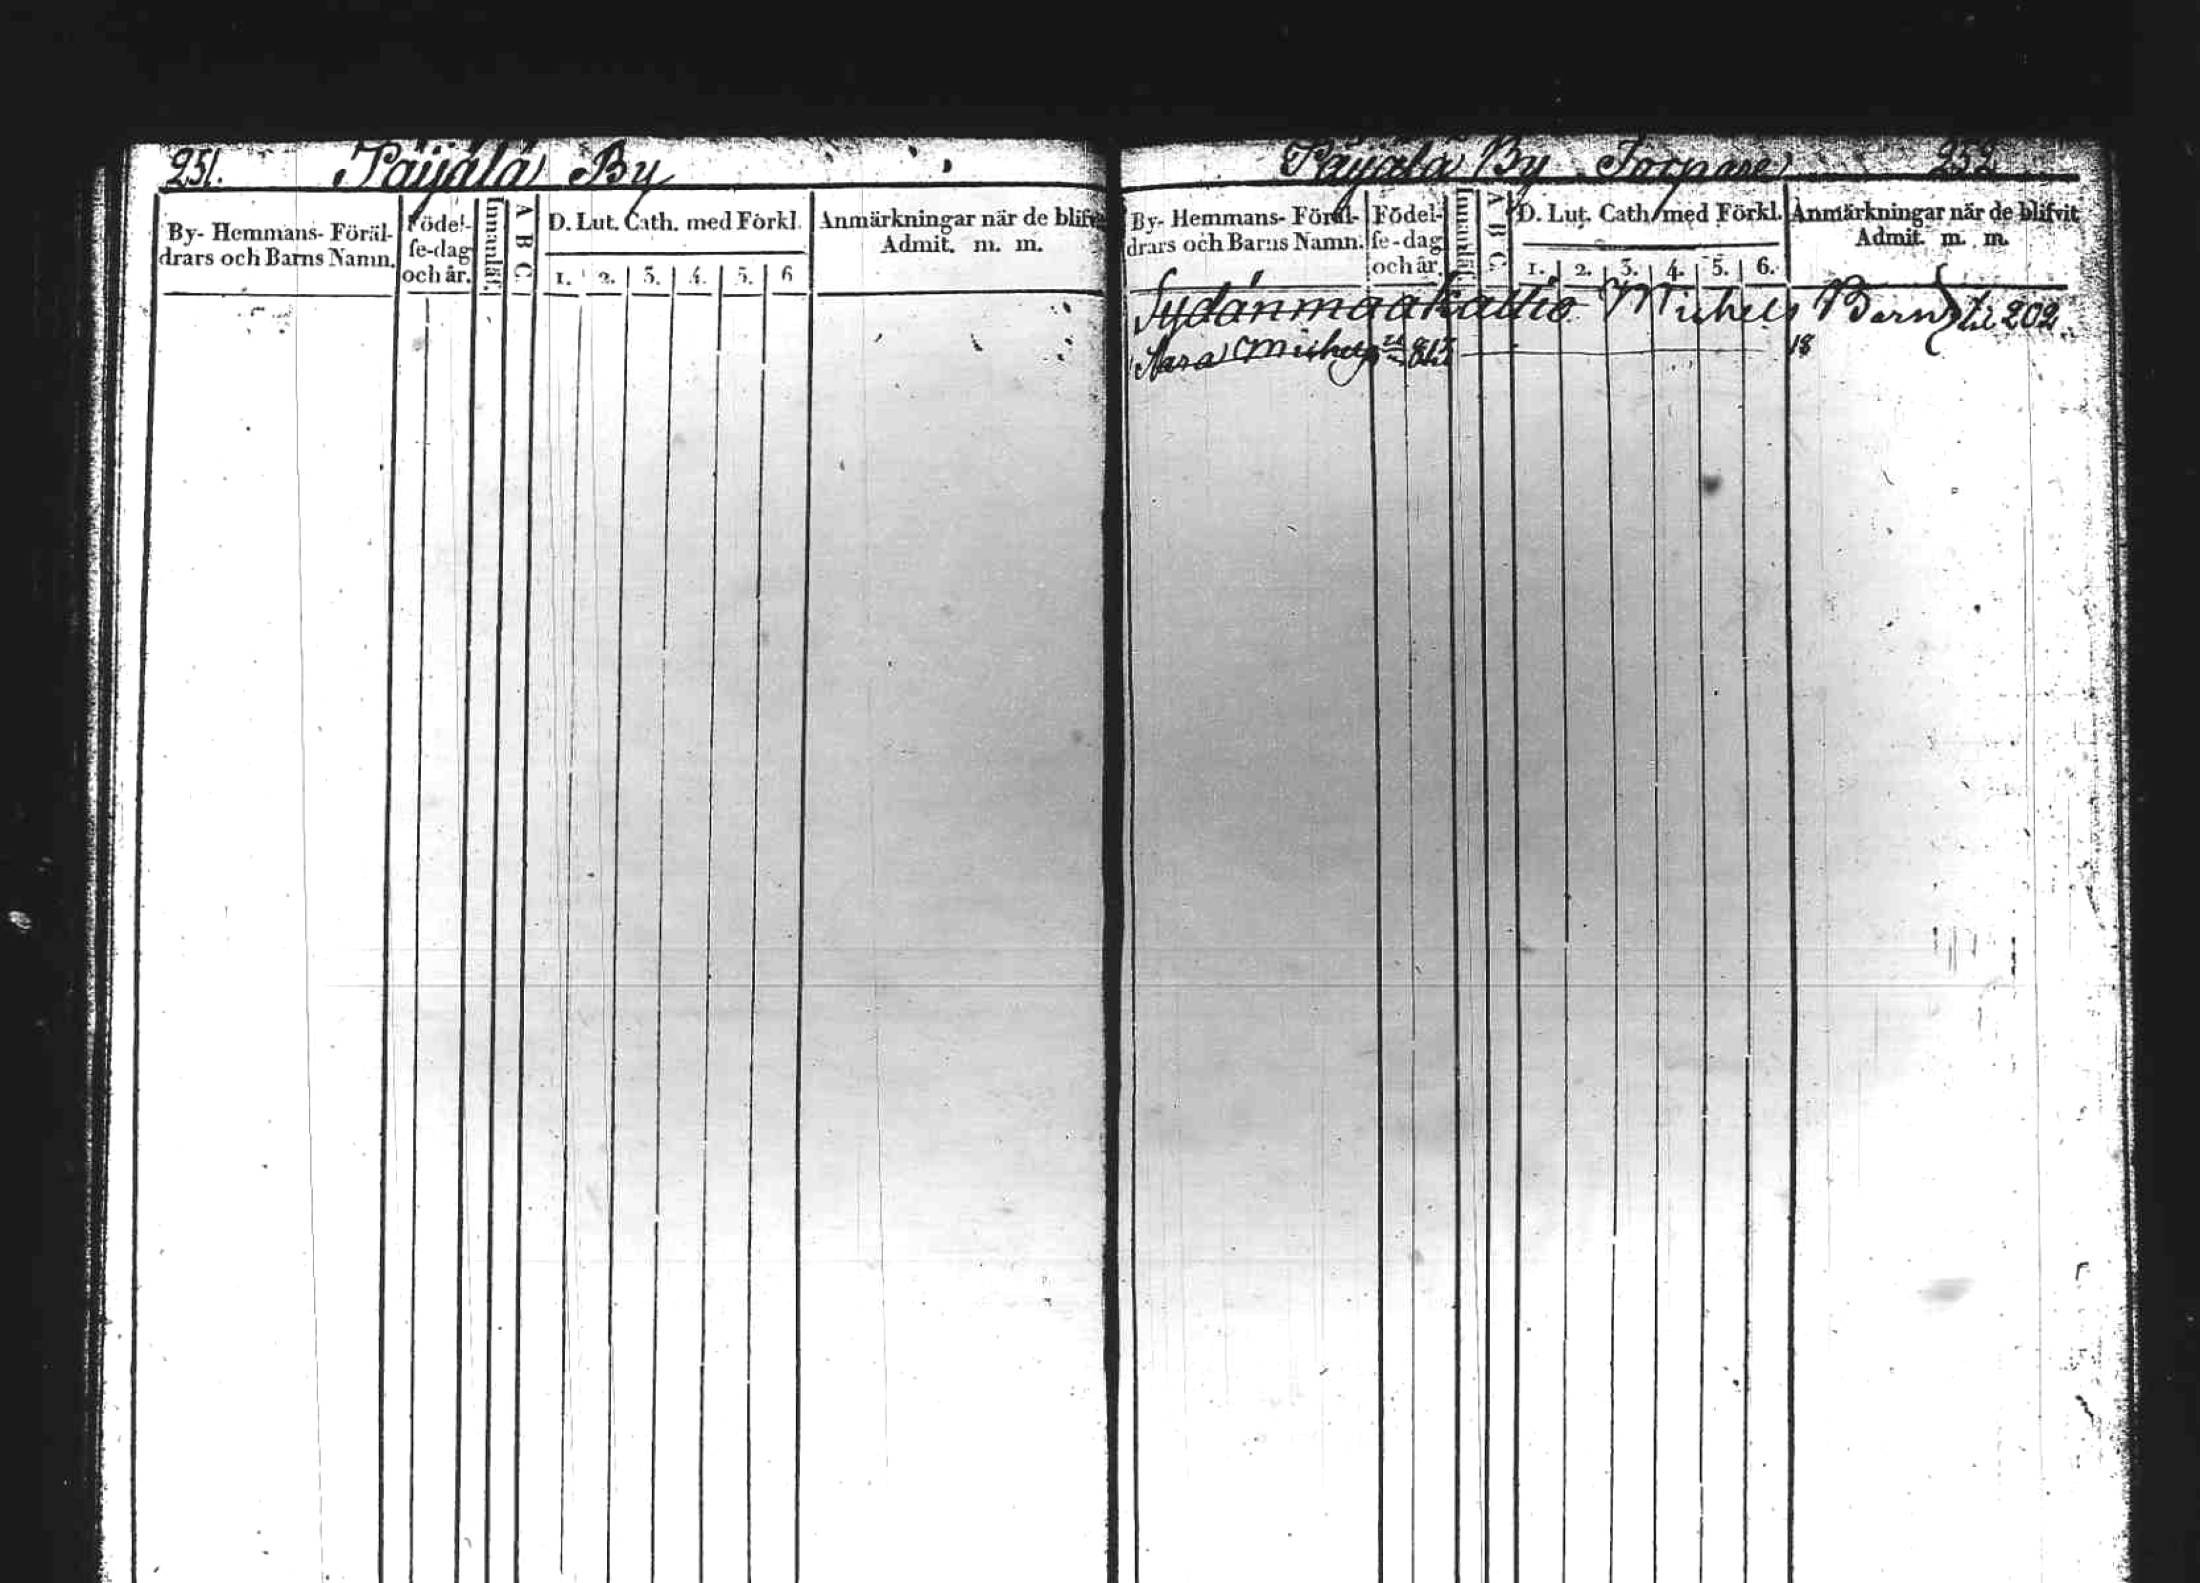 251. Päijälä By
By- Hemmans- Föräl-
drars och Barns Namn.
Födel-
se-dag
och år.
Innanläs.
A B C.
D. Lut. Cath. med Förkl.
1. 2. 3. 4. 5. 6
Anmärkningar när de blifvit
Admit. m. m.
Päijälä By Torpare 252
By- Hemmans- Föräl-
drars och Barns Namn.
Födel-
se-dag
och år.
Innanläs.
A B C.
D. Lut. Cath. med Förkl.
1. 2. 3. 4. 5. 6.
Anmärkningar när de blifvit
Admit. m. m.
Sydänmaakallio Michels Barn till 202.
Sara Michelsd 18